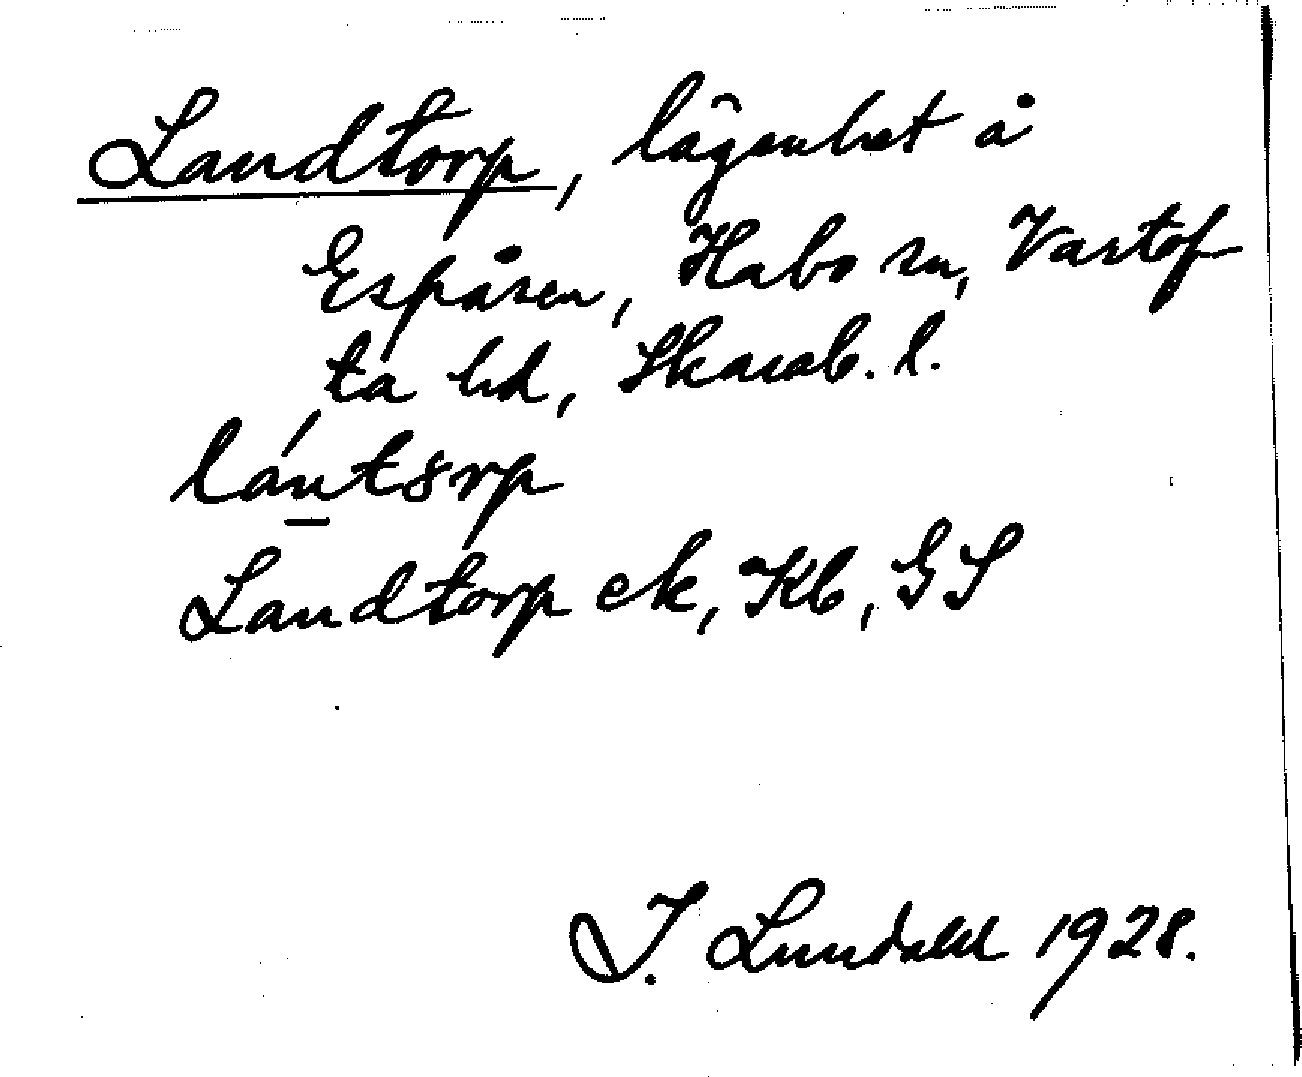 Landtorp, lägenhet å
Espåsen, Habo sn, Vartof
ta hd, Skarab. l.
lántorp
Landtorp ek, Kb, GS
I. Lundahl 1928.